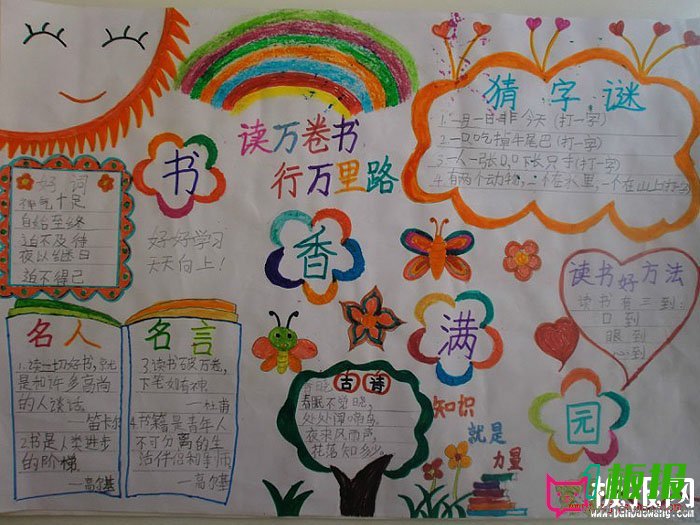 读万卷书
行万里路
猜字谜
1.一月一日非今天(打一字)
2.一只吃掉牛尾巴(打一字)
3.一人一张口口下长只手(打一字)
4.有两个动物,一个在水里,一个在山上(打一字)
书
香
满
园
好词
神气十足
自始至终
迫不及待
夜以继日
迫不得已
好好学习
天天向上!
读书好方法
读书有三到:
口到
眼到
心到
名人
1.读一切好书,就
是和许多高尚
的人谈话。
——笛卡尔
2.书是人类进步
的阶梯
——高尔基
名言
3.读书破万卷,
下笔如有神
——杜甫
4.书籍是青年人
不可分离的生
活伴侣和导师
——高尔基
古诗
春晓
春眠不觉晓,
处处闻啼鸟。
夜来风雨声,
花落知多少。
知识
就是
力量
板报网
www.banbaowang.com